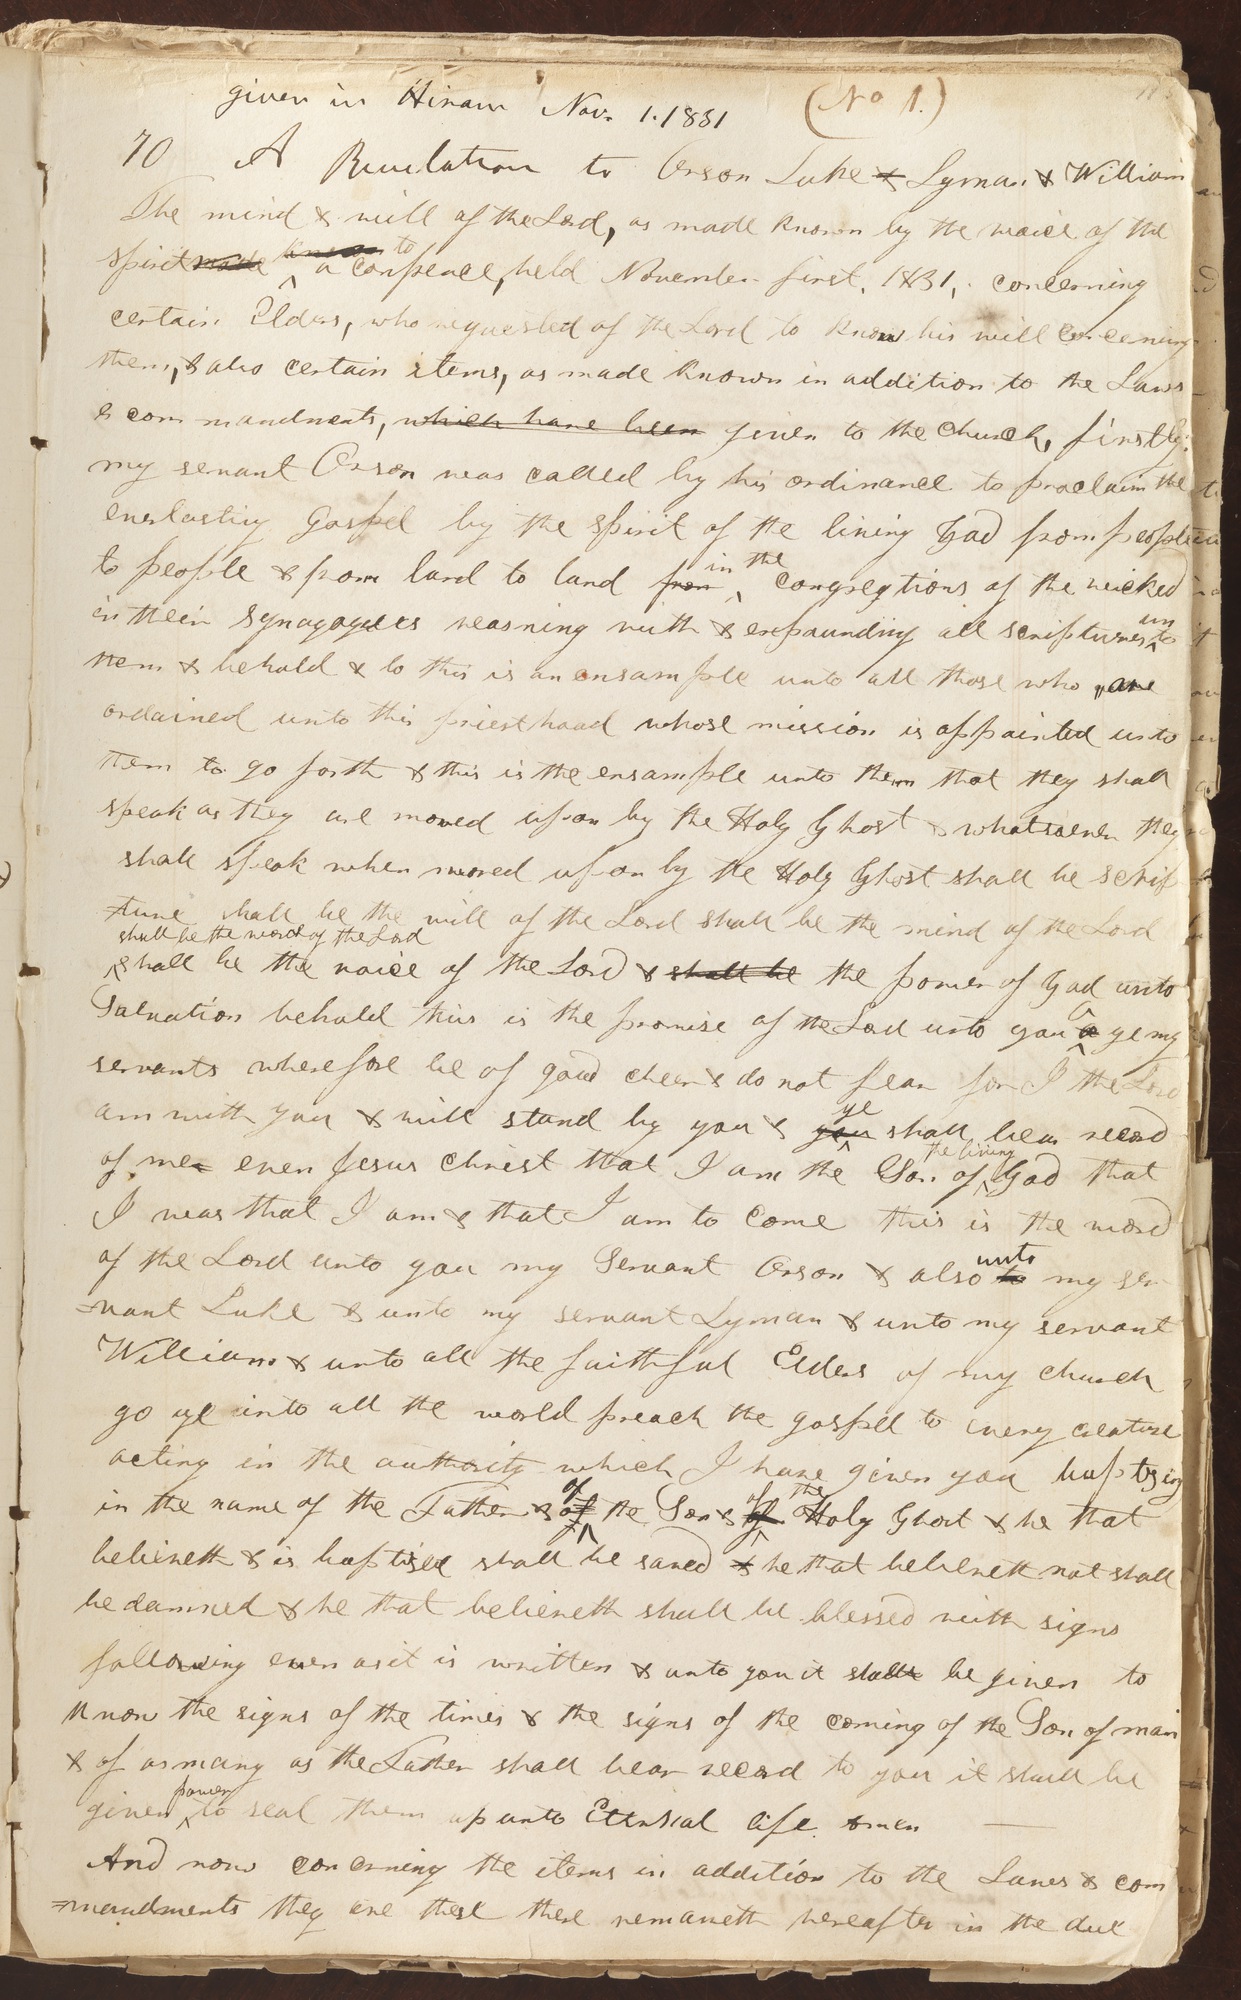 given in Hiram Nov. 1. 1831 (No 1.)
70 A Revelation to Orson Luke & Lyman & William
The mind & will of the Lord, as made known by the voice of the
known to
spirit made a confrence, held November first, 1831, concerning
certain Elders, who requested of the Lord to know his will concerning
them, & also certain items, as made known in addition to the Laws
& commandments, which have been given to the church, firstly:
my servant Orson was called by his ordinance to proclaim the
everlasting Gospel by the spirit of the living God from people
in the
to people & from land to land from congregtions of the wicked
un
in their Synagogues reasning with & expounding all scriptures to
them & behold & lo this is an ensample unto all those who are
ordained unto this priesthood whose mission is appointed unto
them to go forth & this is the ensample unto them that they shall
speak as they are moved upon by the Holy Ghost & whatsoever they
shall speak when moved upon by the Holy Ghost shall be scrip
=ture shall be the will of the Lord shall be the mind of the Lord
shall be the word of the Lord
shall be the voice of the Lord & shall be the power of God unto
Salvation behold this is the promise of the Lord unto you O ye my
servants wherefore be of good cheer & do not fear for I the Lord
ye
am with you & will stand by you & you shall bear record
the living
of me even Jesus Christ that I am the Son of God that
I was that I am & that I am to come this is the word
unto
of the Lord unto you my Servant Orson & also to my ser
=vant Luke & unto my servant Lyman & unto my servant
William & unto all the faithful Elders of my church
go ye into all the world preach the gospel to every creature
acting in the authority which I have given you baptizing
of of the
in the name of the Father & of the Son & of Holy Ghost & he that
believeth & is baptised shall be saved & he that believeth not shall
be damned & he that believeth shall be blessed with signs
following even as it is written & unto you it shall be given to
know the signs of the times & the signs of the coming of the Son of man
& of as many as the Father shall bear record to you it shall be
power
given to seal them up unto Eternal life amen
And now concerning the items in addition to the Laws & com
=mandments they are these there remaneth hereafter in the due